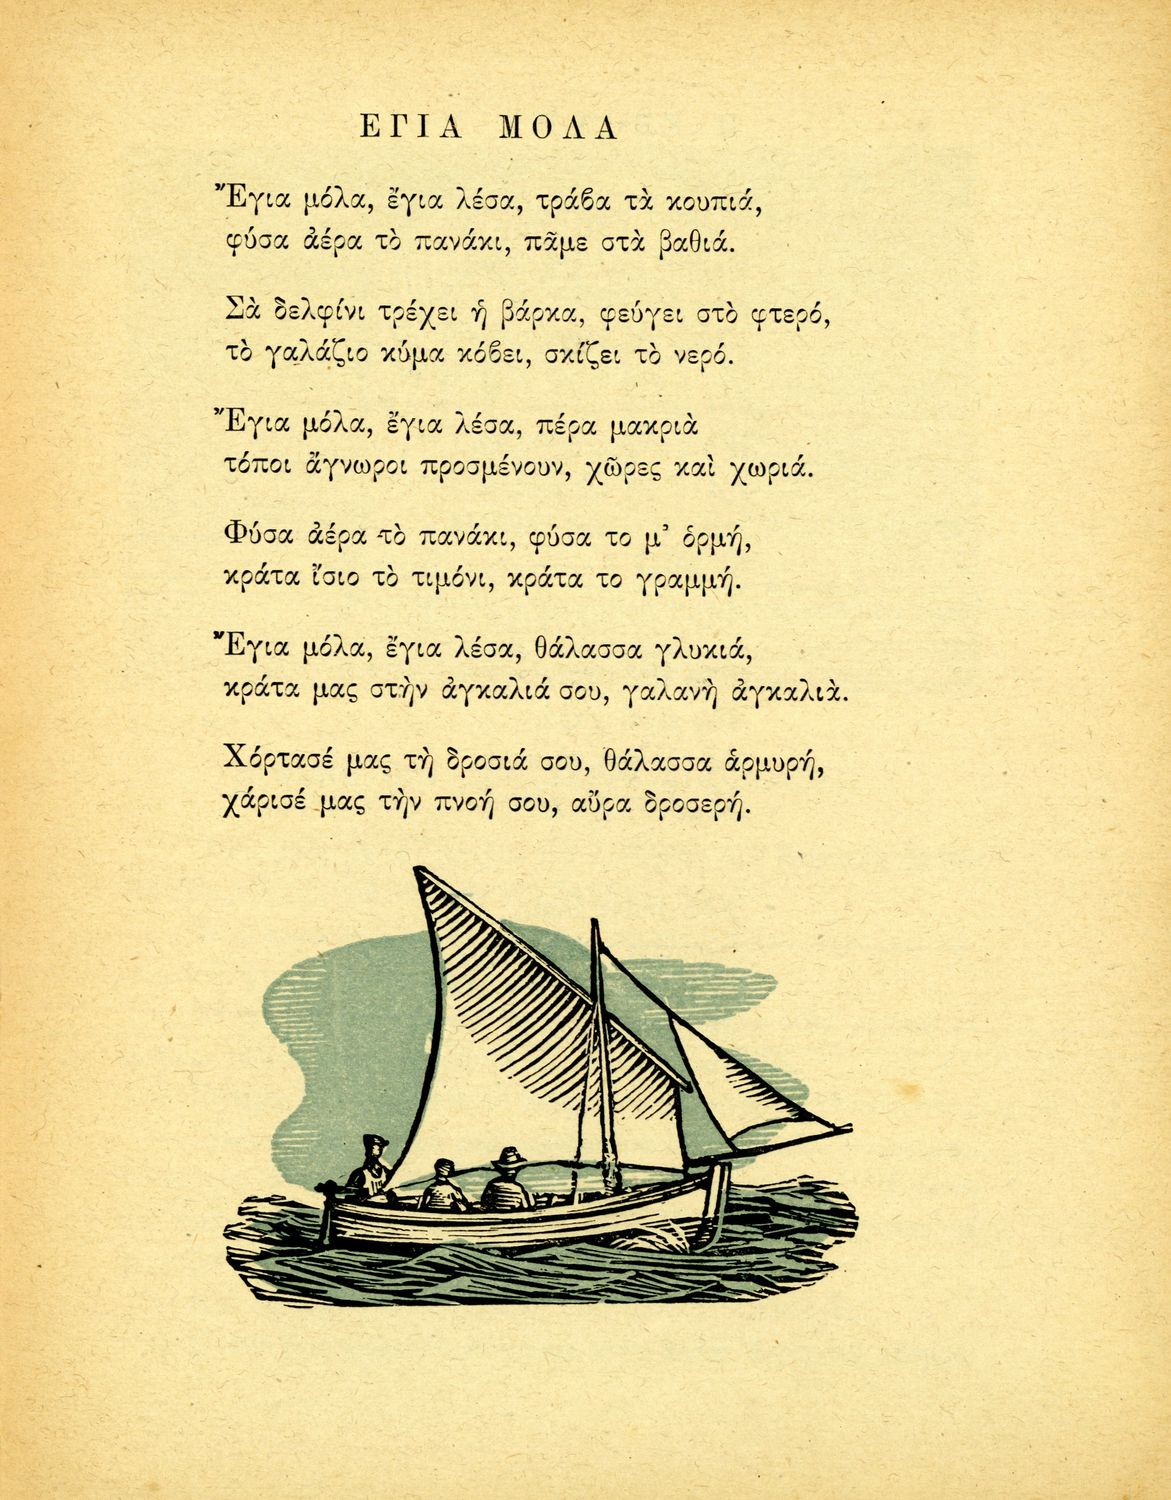 ΕΓΙΑ ΜΟΛΑ
Ἔγια μόλα, ἔγια λέσα, τράβα τὰ κουπιά,
φύσα ἀέρα τὸ πανάκι, πᾶμε στὰ βαθιά.
Σὰ δελφίνι τρέχει ἡ βάρκα, φεύγει στὸ φτερό,
τὸ γαλάζιο κύμα κόβει, σκίζει τὸ νερό.
Ἔγια μόλα, ἔγια λέσα, πέρα μακριὰ
τόποι ἄγνωροι προσμένουν, χῶρες καὶ χωριά.
Φύσα ἀέρα τὸ πανάκι, φύσα το μ' ὁρμή,
κράτα ἴσιο τὸ τιμόνι, κράτα το γραμμή.
Ἔγια μόλα, ἔγια λέσα, θάλασσα γλυκιά,
κράτα μας στὴν ἀγκαλιά σου, γαλανὴ ἀγκαλιὰ.
Χόρτασέ μας τὴ δροσιά σου, θάλασσα ἁρμυρή,
χάρισέ μας τὴν πνοή σου, αὔρα δροσερή.